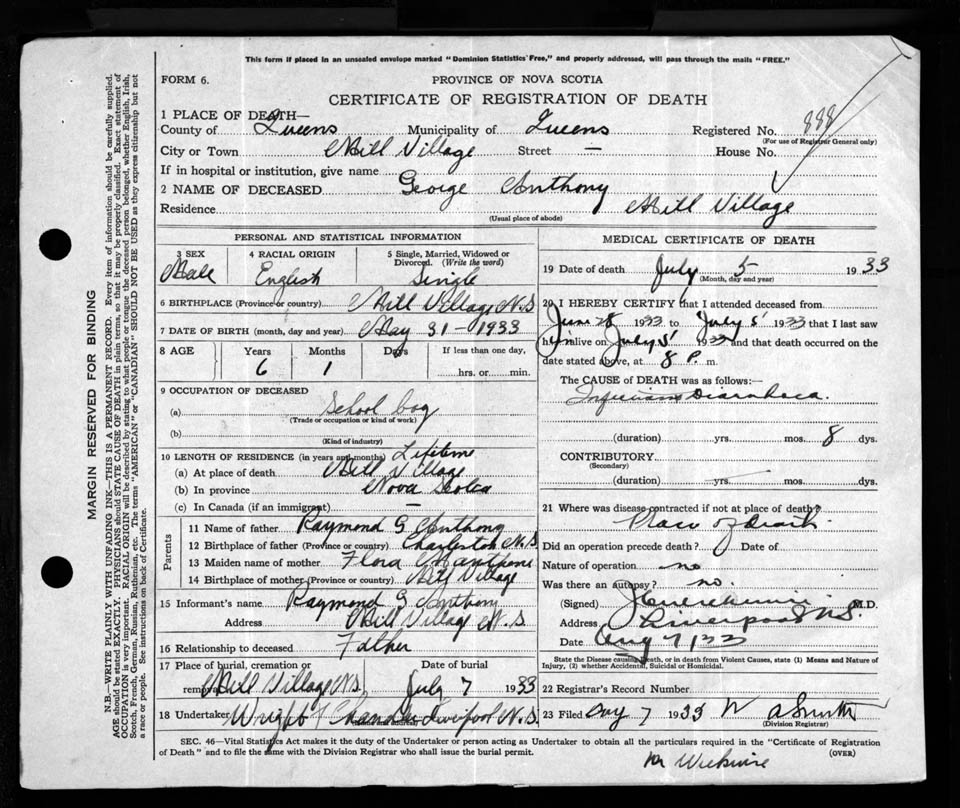 This form if placed in an unsealed envelope marked "Dominion Statistics Free," and properly addressed, will pass through the mails "FREE."
FORM 6.
PROVINCE OF NOVA SCOTIA
CERTIFICATE OF REGISTRATION OF DEATH
1 PLACE OF DEATH—
County of Queens Municipality of Queens Registered No. 888
(For use of Registrar General only)
City or Town Mill Village Street — House No.
If in hospital or institution, give name
2 NAME OF DECEASED George Anthony
Residence Mill Village
(Usual place of abode)
PERSONAL AND STATISTICAL INFORMATION
3 SEX 4 RACIAL ORIGIN 5 Single, Married, Widowed or Divorced. (Write the word)
Male English Single
6 BIRTHPLACE (Province or country) Mill Village N.S
7 DATE OF BIRTH (month, day and year) May 31 - 1933
8 AGE Years Months Days If less than one day,
6 1 hrs. or min.
9 OCCUPATION OF DECEASED
(a) School boy
(Trade or occupation or kind of work)
(b)
(Kind of industry)
10 LENGTH OF RESIDENCE (in years and months) Lifetime
(a) At place of death Mill Village
(b) In province Nova Scotia
(c) In Canada (if an immigrant) —
Parents
11 Name of father Raymond G Anthony
12 Birthplace of father (Province or country) Charleston N.S
13 Maiden name of mother Flora
14 Birthplace of mother (Province or country) Mill Village
15 Informant's name Raymond G Anthony
Address Mill Village N.S
16 Relationship to deceased Father
17 Place of burial, cremation or removal Date of burial
Mill Village N.S. July 7 1933
18 Undertaker Wright Chandler Liverpool N.S.
MEDICAL CERTIFICATE OF DEATH
19 Date of death July 5 1933
(Month, day and year)
20 I HEREBY CERTIFY that I attended deceased from
June 28 1933 to July 5 1933 that I last saw
him alive on July 5 1933 and that death occurred on the
date stated above, at 8 P. m.
The CAUSE of DEATH was as follows:—
Diarrhoea.
(duration) yrs. mos. 8 dys.
CONTRIBUTORY
(Secondary)
(duration) yrs. mos. dys.
21 Where was disease contracted if not at place of death?
Place of death.
Did an operation precede death? Date of
Nature of operation no
Was there an autopsy? no.
(Signed) M.D.
Address Liverpool N.S.
Date Aug 7, 33
State the Disease causing Death, or in death from Violent Causes, state (1) Means and Nature of
Injury, (2) whether Accidental, Suicidal or Homicidal.
22 Registrar's Record Number
23 Filed Aug 7 1933 W A Smith
(Division Registrar)
SEC. 46—Vital Statistics Act makes it the duty of the Undertaker or person acting as Undertaker to obtain all the particulars required in the "Certificate of Registration
of Death" and to file the same with the Division Registrar who shall issue the burial permit. (OVER)
MARGIN RESERVED FOR BINDING
N.B.—WRITE PLAINLY WITH UNFADING INK—THIS IS A PERMANENT RECORD. Every item of information should be carefully supplied.
AGE should be stated EXACTLY. PHYSICIANS should STATE CAUSE OF DEATH in plain terms, so that it may be properly classified. Exact statement of
OCCUPATION is very important. RACIAL ORIGIN will be described by stating to what people or tongue the deceased person belonged, whether English, Irish,
Scotch, French, German, Russian, Ruthenian, etc. The terms "AMERICAN" or "CANADIAN" SHOULD NOT BE USED as they express citizenship but not
a race or people. See instructions on back of Certificate.